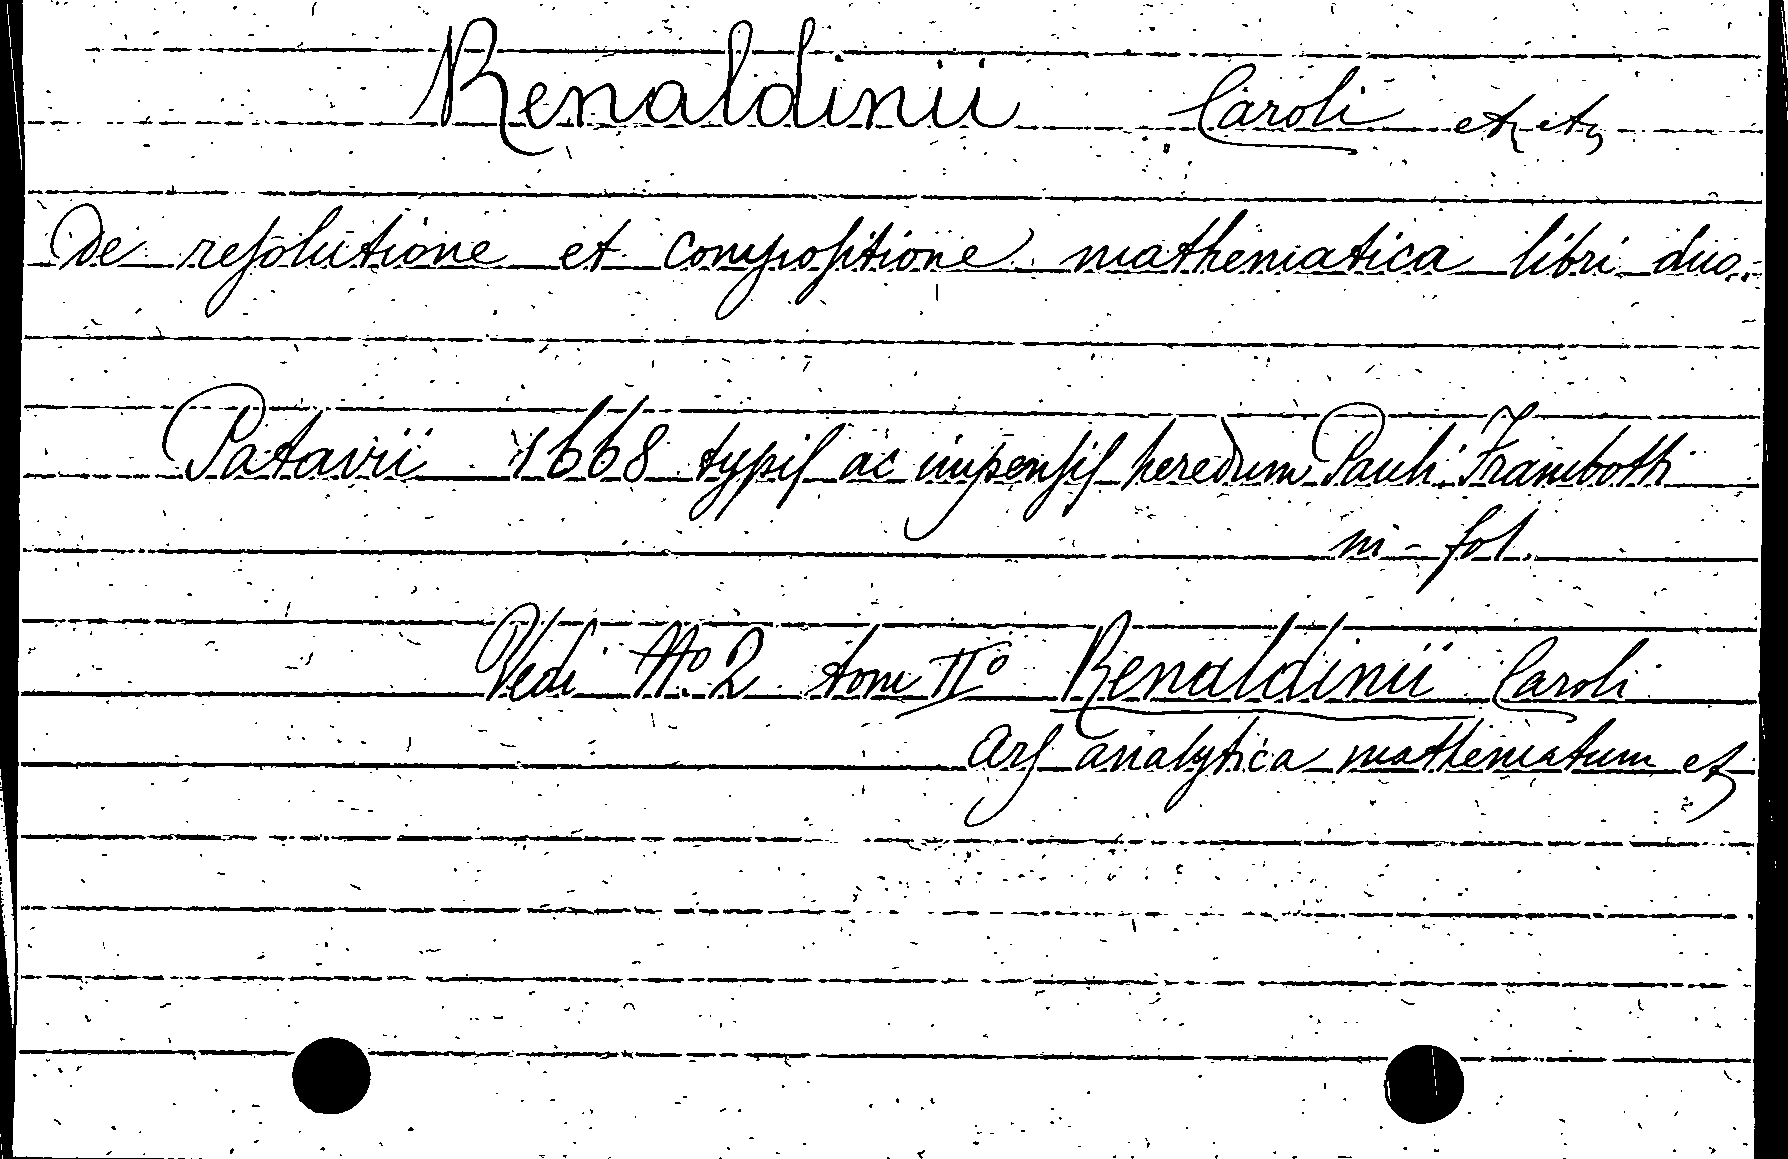 Renaldinii Caroli etc etc
De resolutione et compositione mathematica libri duo.
Patavii 1668 typis ac impensis heredum Pauli Frambotti
in-fol.
Vedi No 2 tom IIº Renaldinii Caroli
Ars analytica mathematum etc